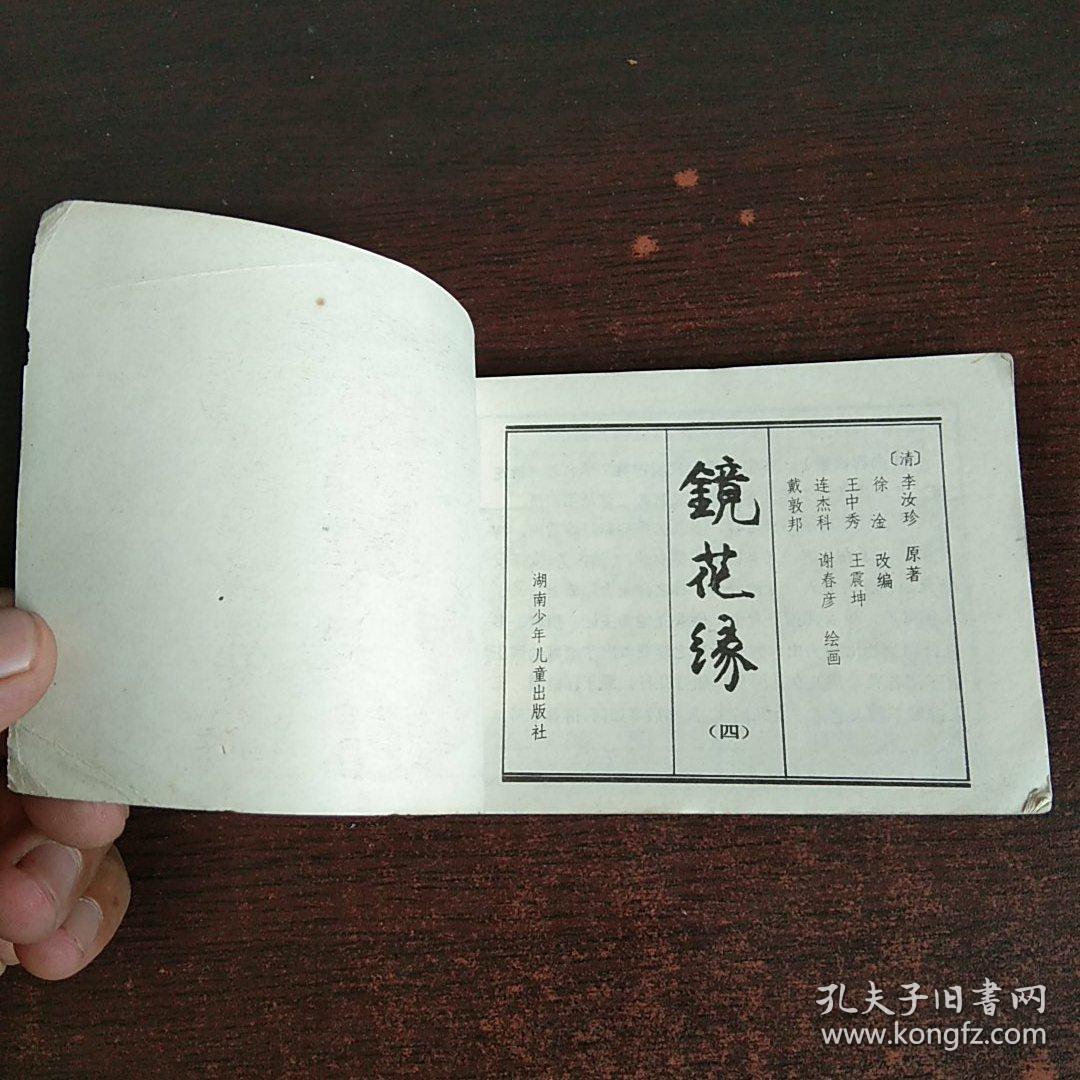 〔清〕李汝珍 原著
徐淦 改编
王中秀 王震坤
连杰科 谢春彦 绘画
戴敦邦
鏡花缘
(四)
湖南少年儿童出版社
孔夫子旧書网
www.kongfz.com